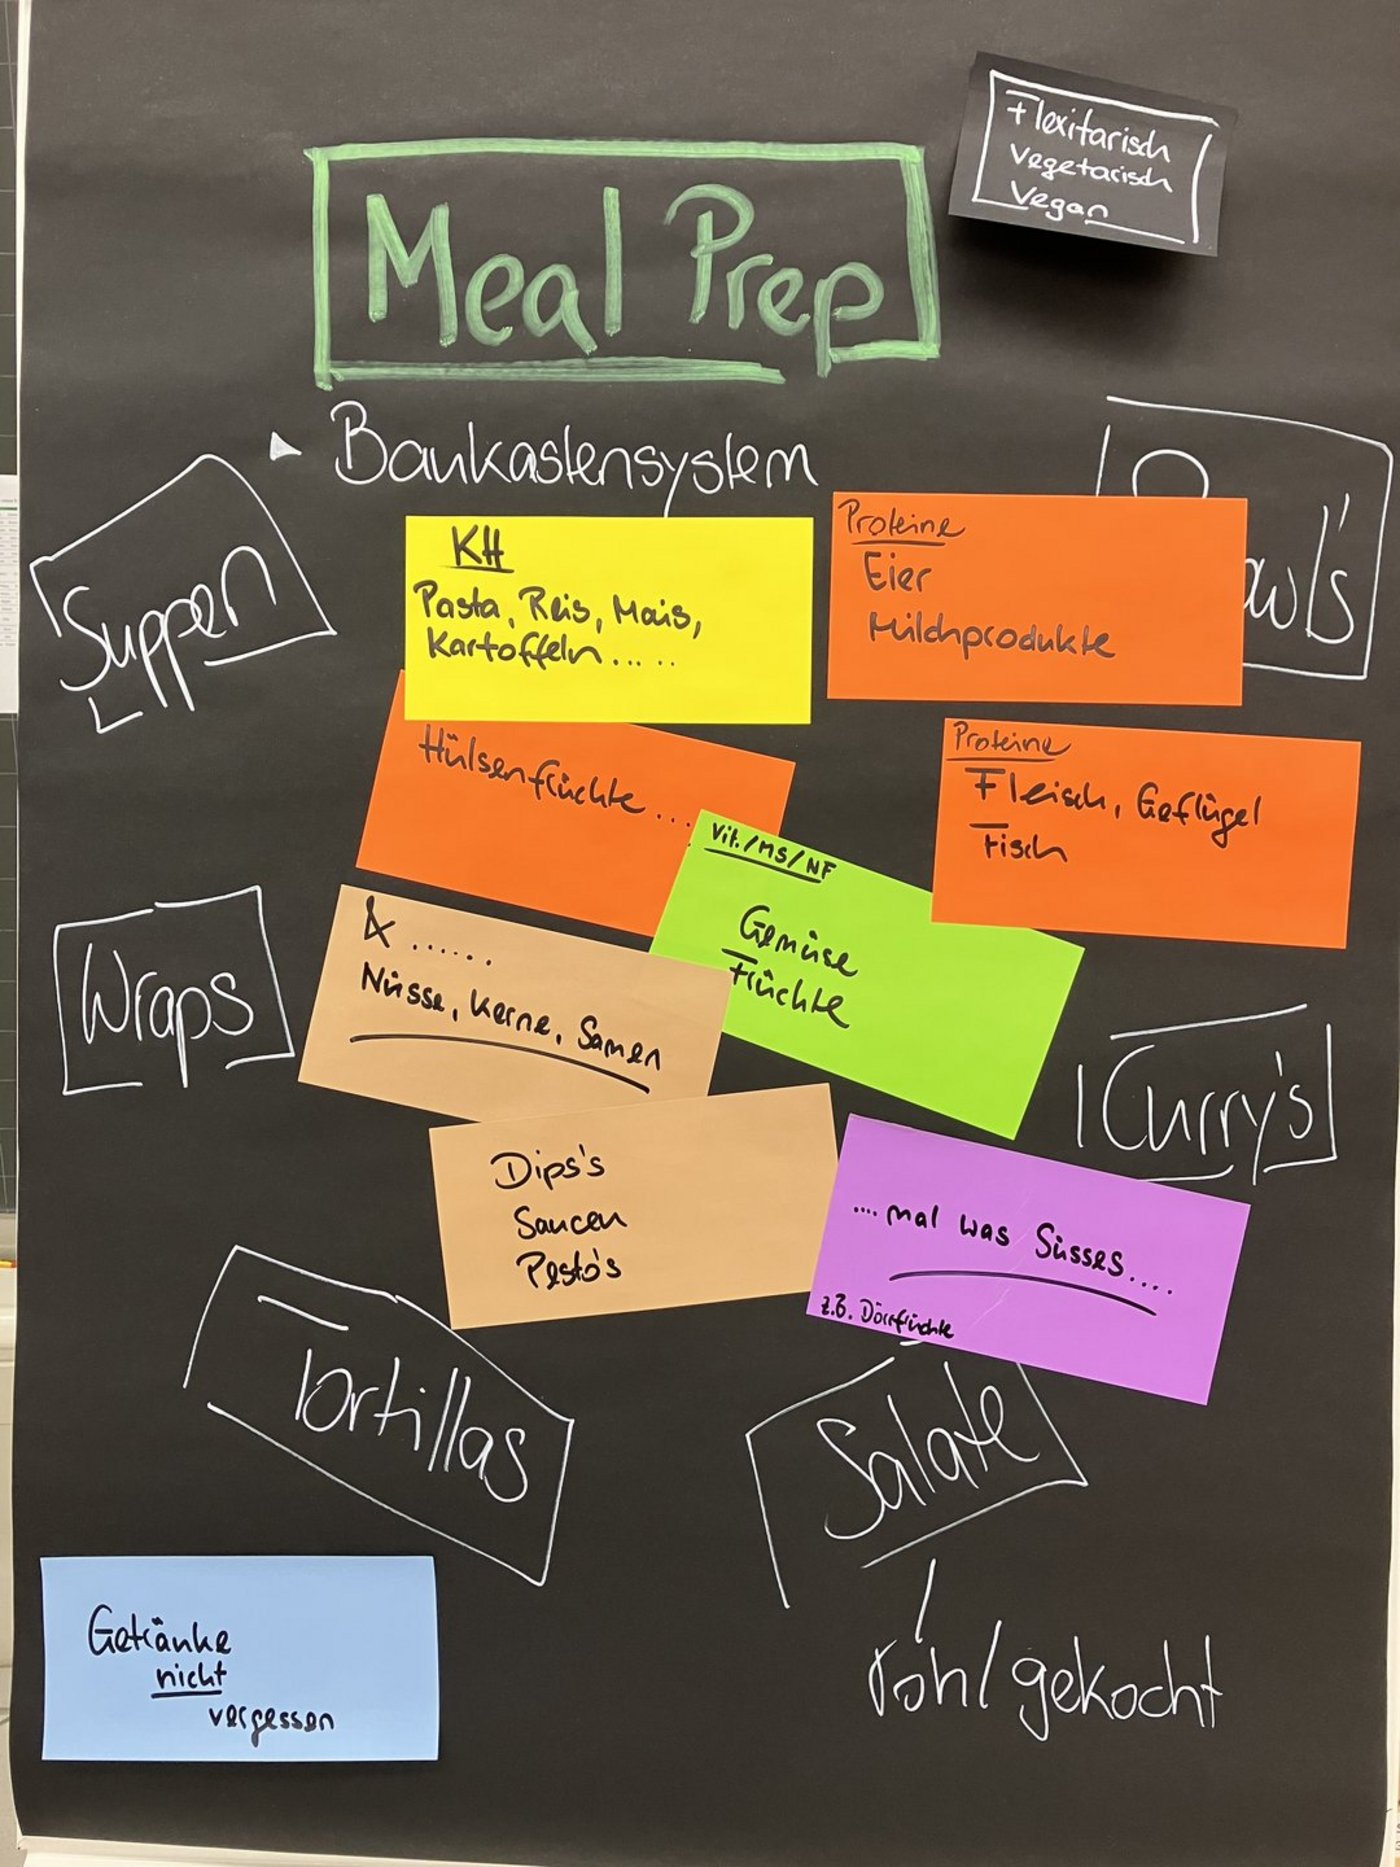 Flexitarisch
Vegetarisch
Vegan
Meal Prep
Baukastensystem
Suppen
KH
Pasta, Reis, Mais,
Kartoffeln.....
Proteine
Eier
Milchprodukte
owl's
Hülsenfrüchte....
Proteine
Fleisch, Geflügel
Fisch
Vit./MS/NF
Gemüse
Früchte
Wraps
& ......
Nüsse, Kerne, Samen
Curry's
Dips's
Saucen
Pesto's
.... mal was Süsses....
z.B. Dörrfrüchte
Tortillas
Salate
roh/gekocht
Getränke
nicht
vergessen